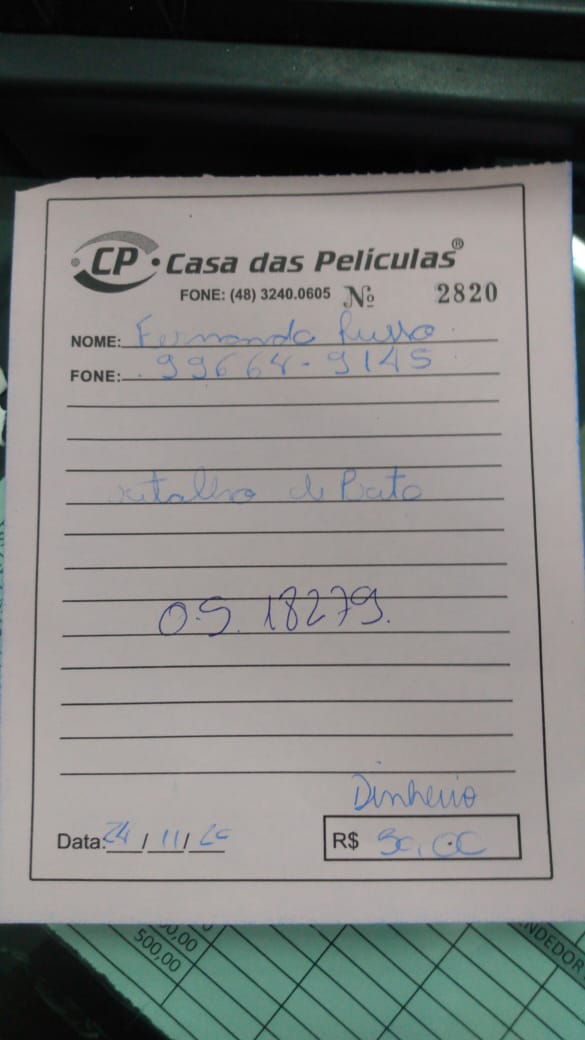 CP · Casa das Películas®
FONE: (48) 3240.0605 Nº 2820
NOME: Fernando Russo
FONE: 99664-9145
retalho de Preto
O.S. 18279.
Dinheiro
Data: 24/11/20 R$ 50,00
00,00
500,00
NDEDOR